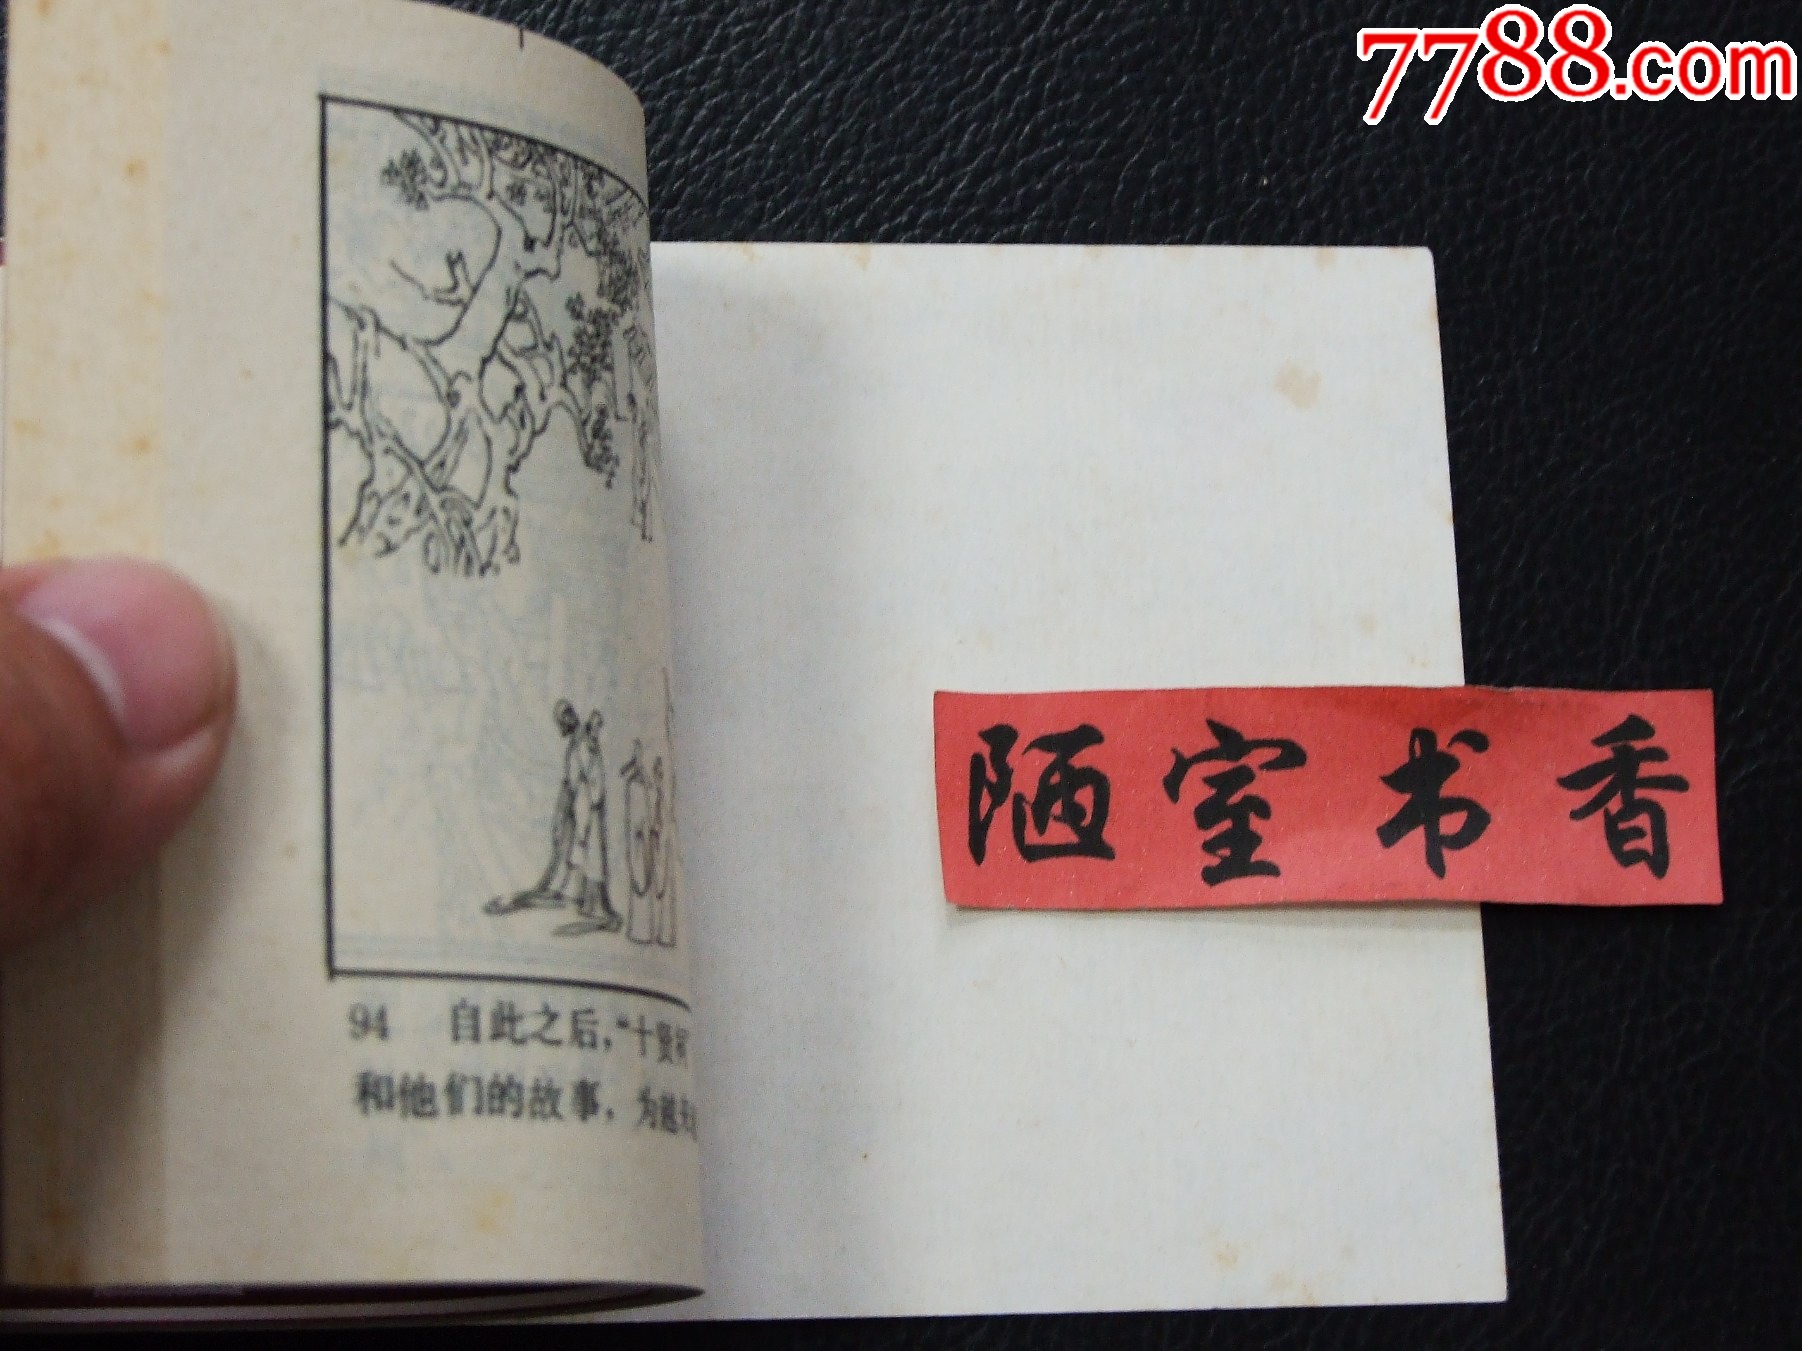 7788.com
陋室书香
94 自此之后，“十贤
和他们的故事，为